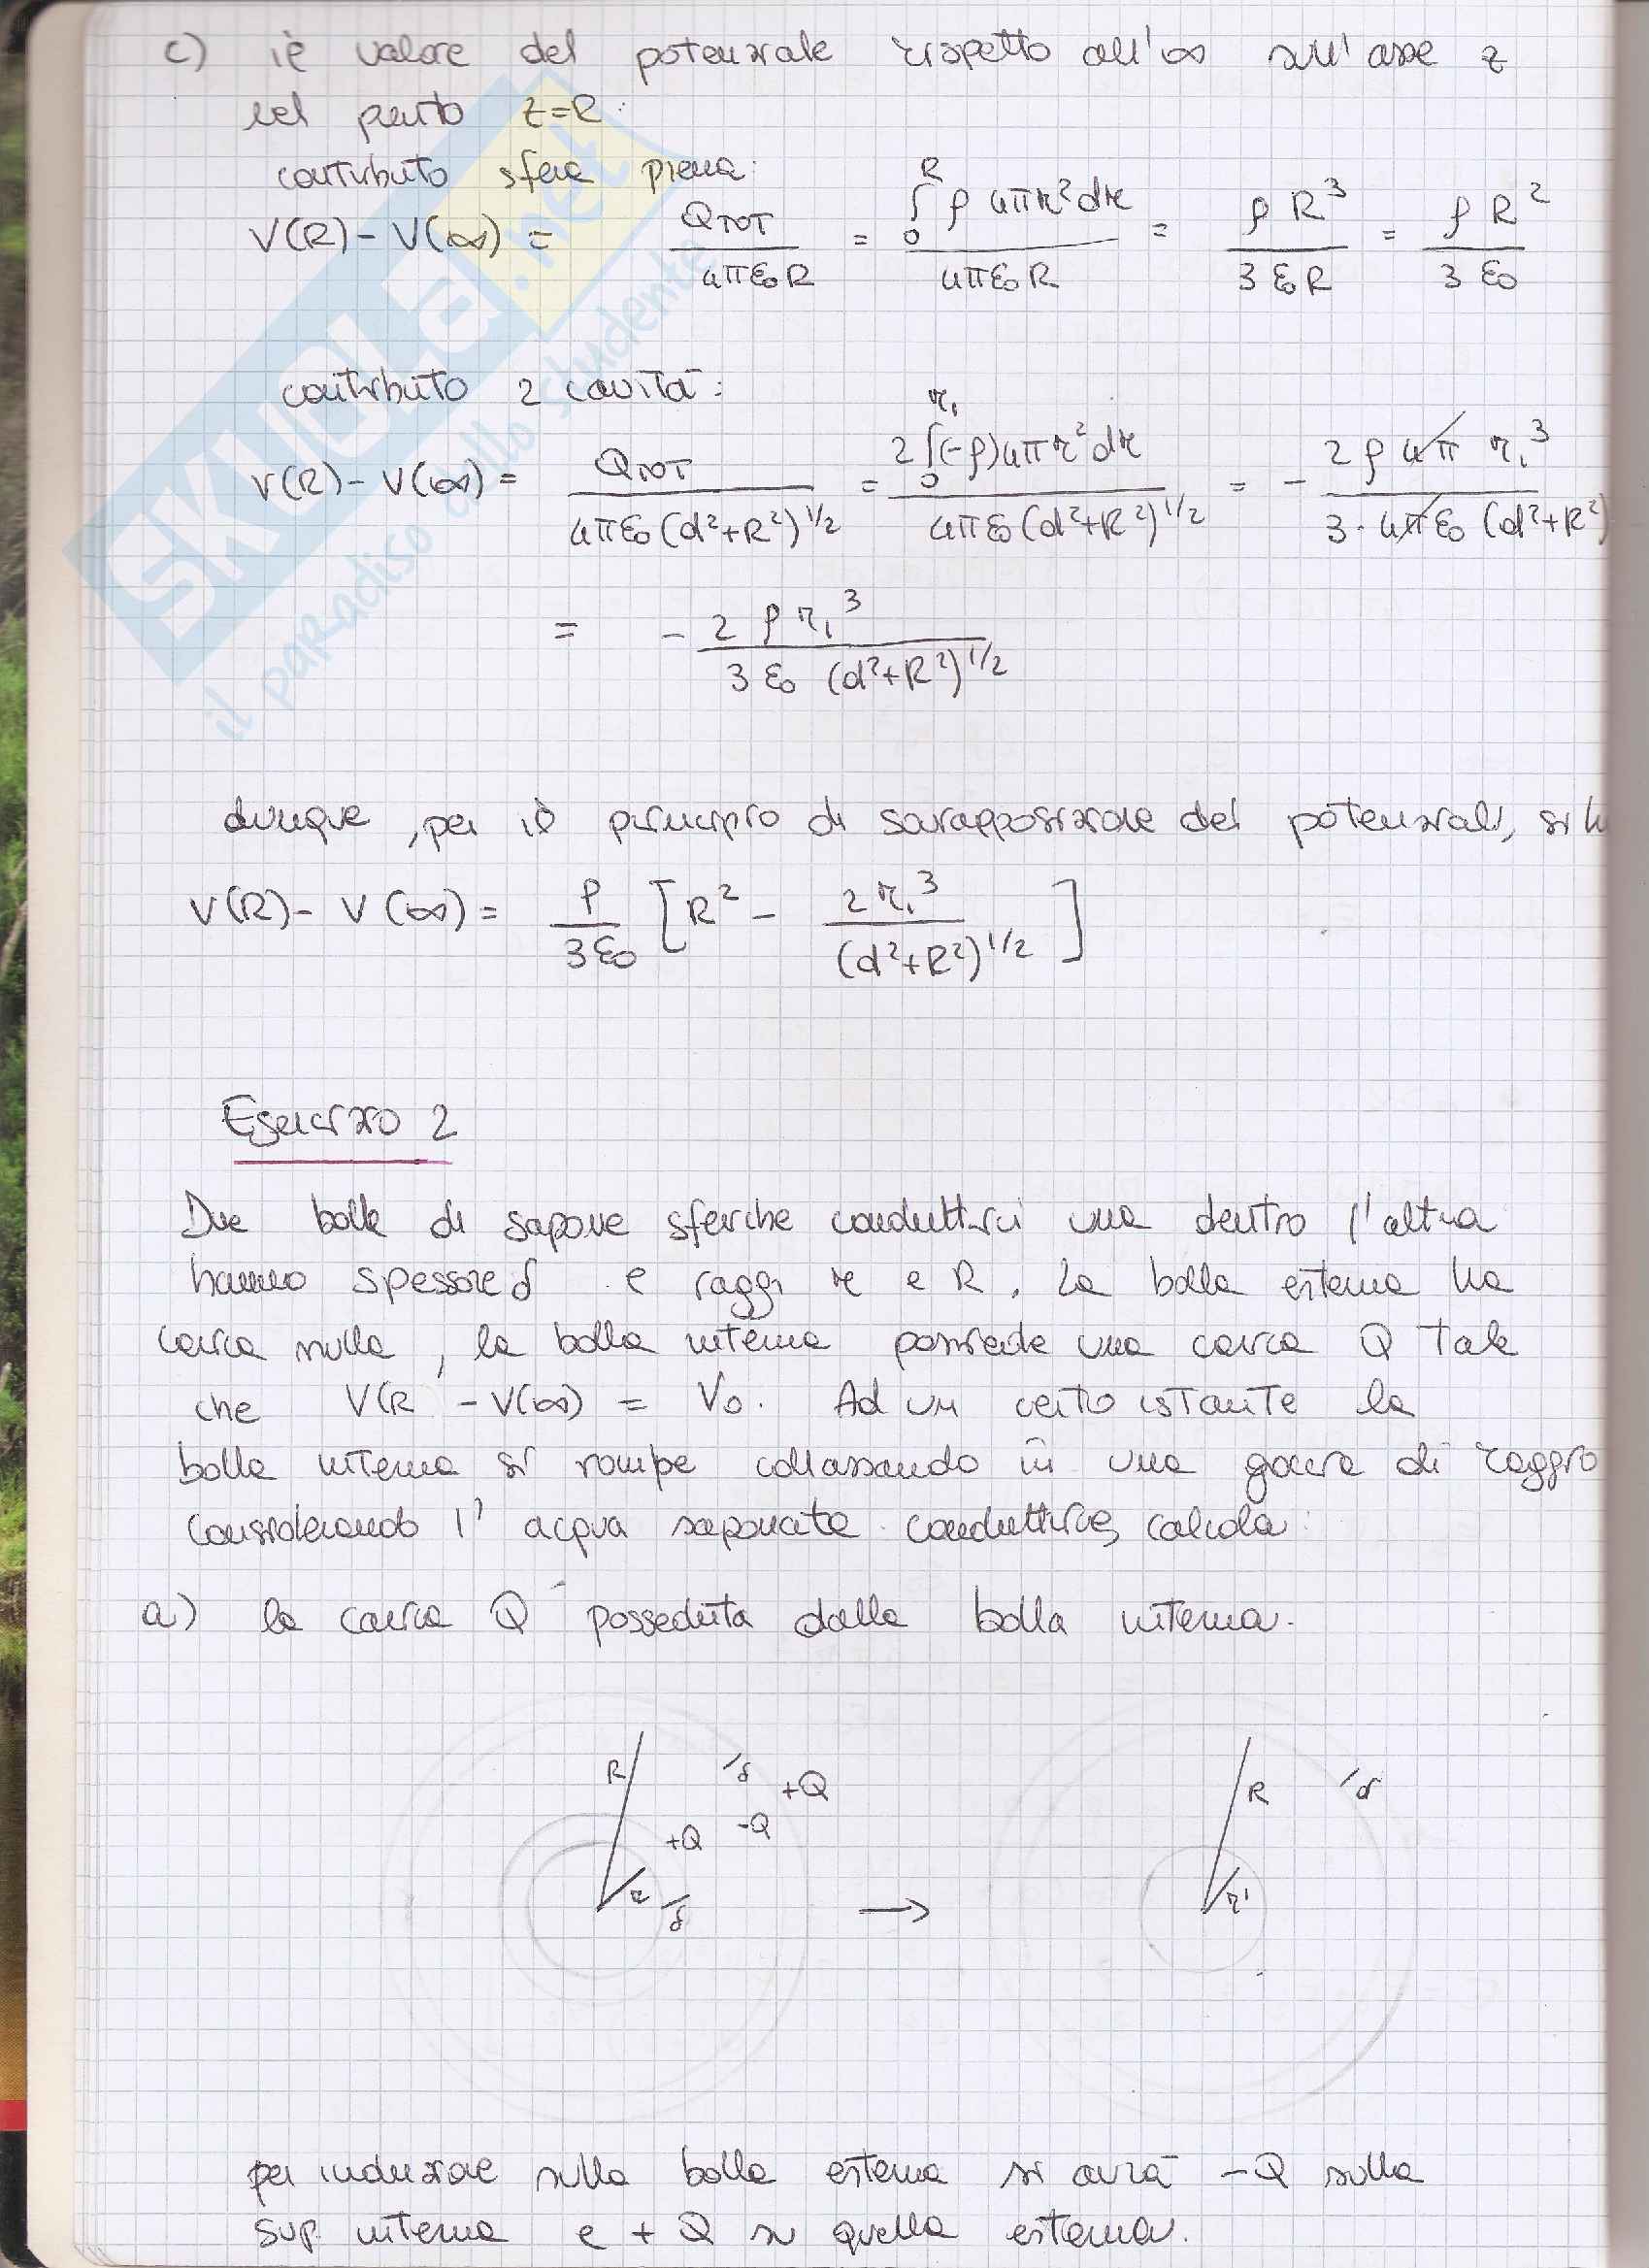 c) il valore del potenziale rispetto all'∞ sull'asse z
nel punto z=R:
contributo sfera piena:
V(R) - V(∞) = Q_TOT / 4πε₀R = ∫₀ᴿ ρ 4πr² dr / 4πε₀R = ρR³ / 3ε₀R = ρR² / 3ε₀
contributo 2 cavità:
V(R) - V(∞) = Q_TOT / 4πε₀(d²+R²)^1/2 = 2∫₀^r₁ (-ρ)4πr² dr / 4πε₀(d²+R²)^1/2 = - 2ρ4π r₁³ / 3·4πε₀ (d²+R²)
= - 2ρr₁³ / 3ε₀ (d²+R²)^1/2
dunque, per il principio di sovrapposizione dei potenziali, si h
V(R) - V(∞) = ρ/3ε₀ [R² - 2r₁³ / (d²+R²)^1/2]
Esercizio 2
Due bolle di sapone sferiche conduttrici una dentro l'altra
hanno spessore δ e raggi r e R. La bolla esterna ha
carica nulla, la bolla interna possiede una carica Q tale
che V(R - V(∞) = V₀. Ad un certo istante la
bolla interna si rompe collassando in una goccia di raggio
considerando l'acqua saponata conduttrice, calcola:
a) la carica Q posseduta dalla bolla interna.
R δ +Q
+Q -Q
r δ
→
R δ
r'
per induzione sulla bolla esterna si avrà -Q sulla
sup. interna e +Q su quella esterna.
SKUOLa.net
il paradiso dello studente